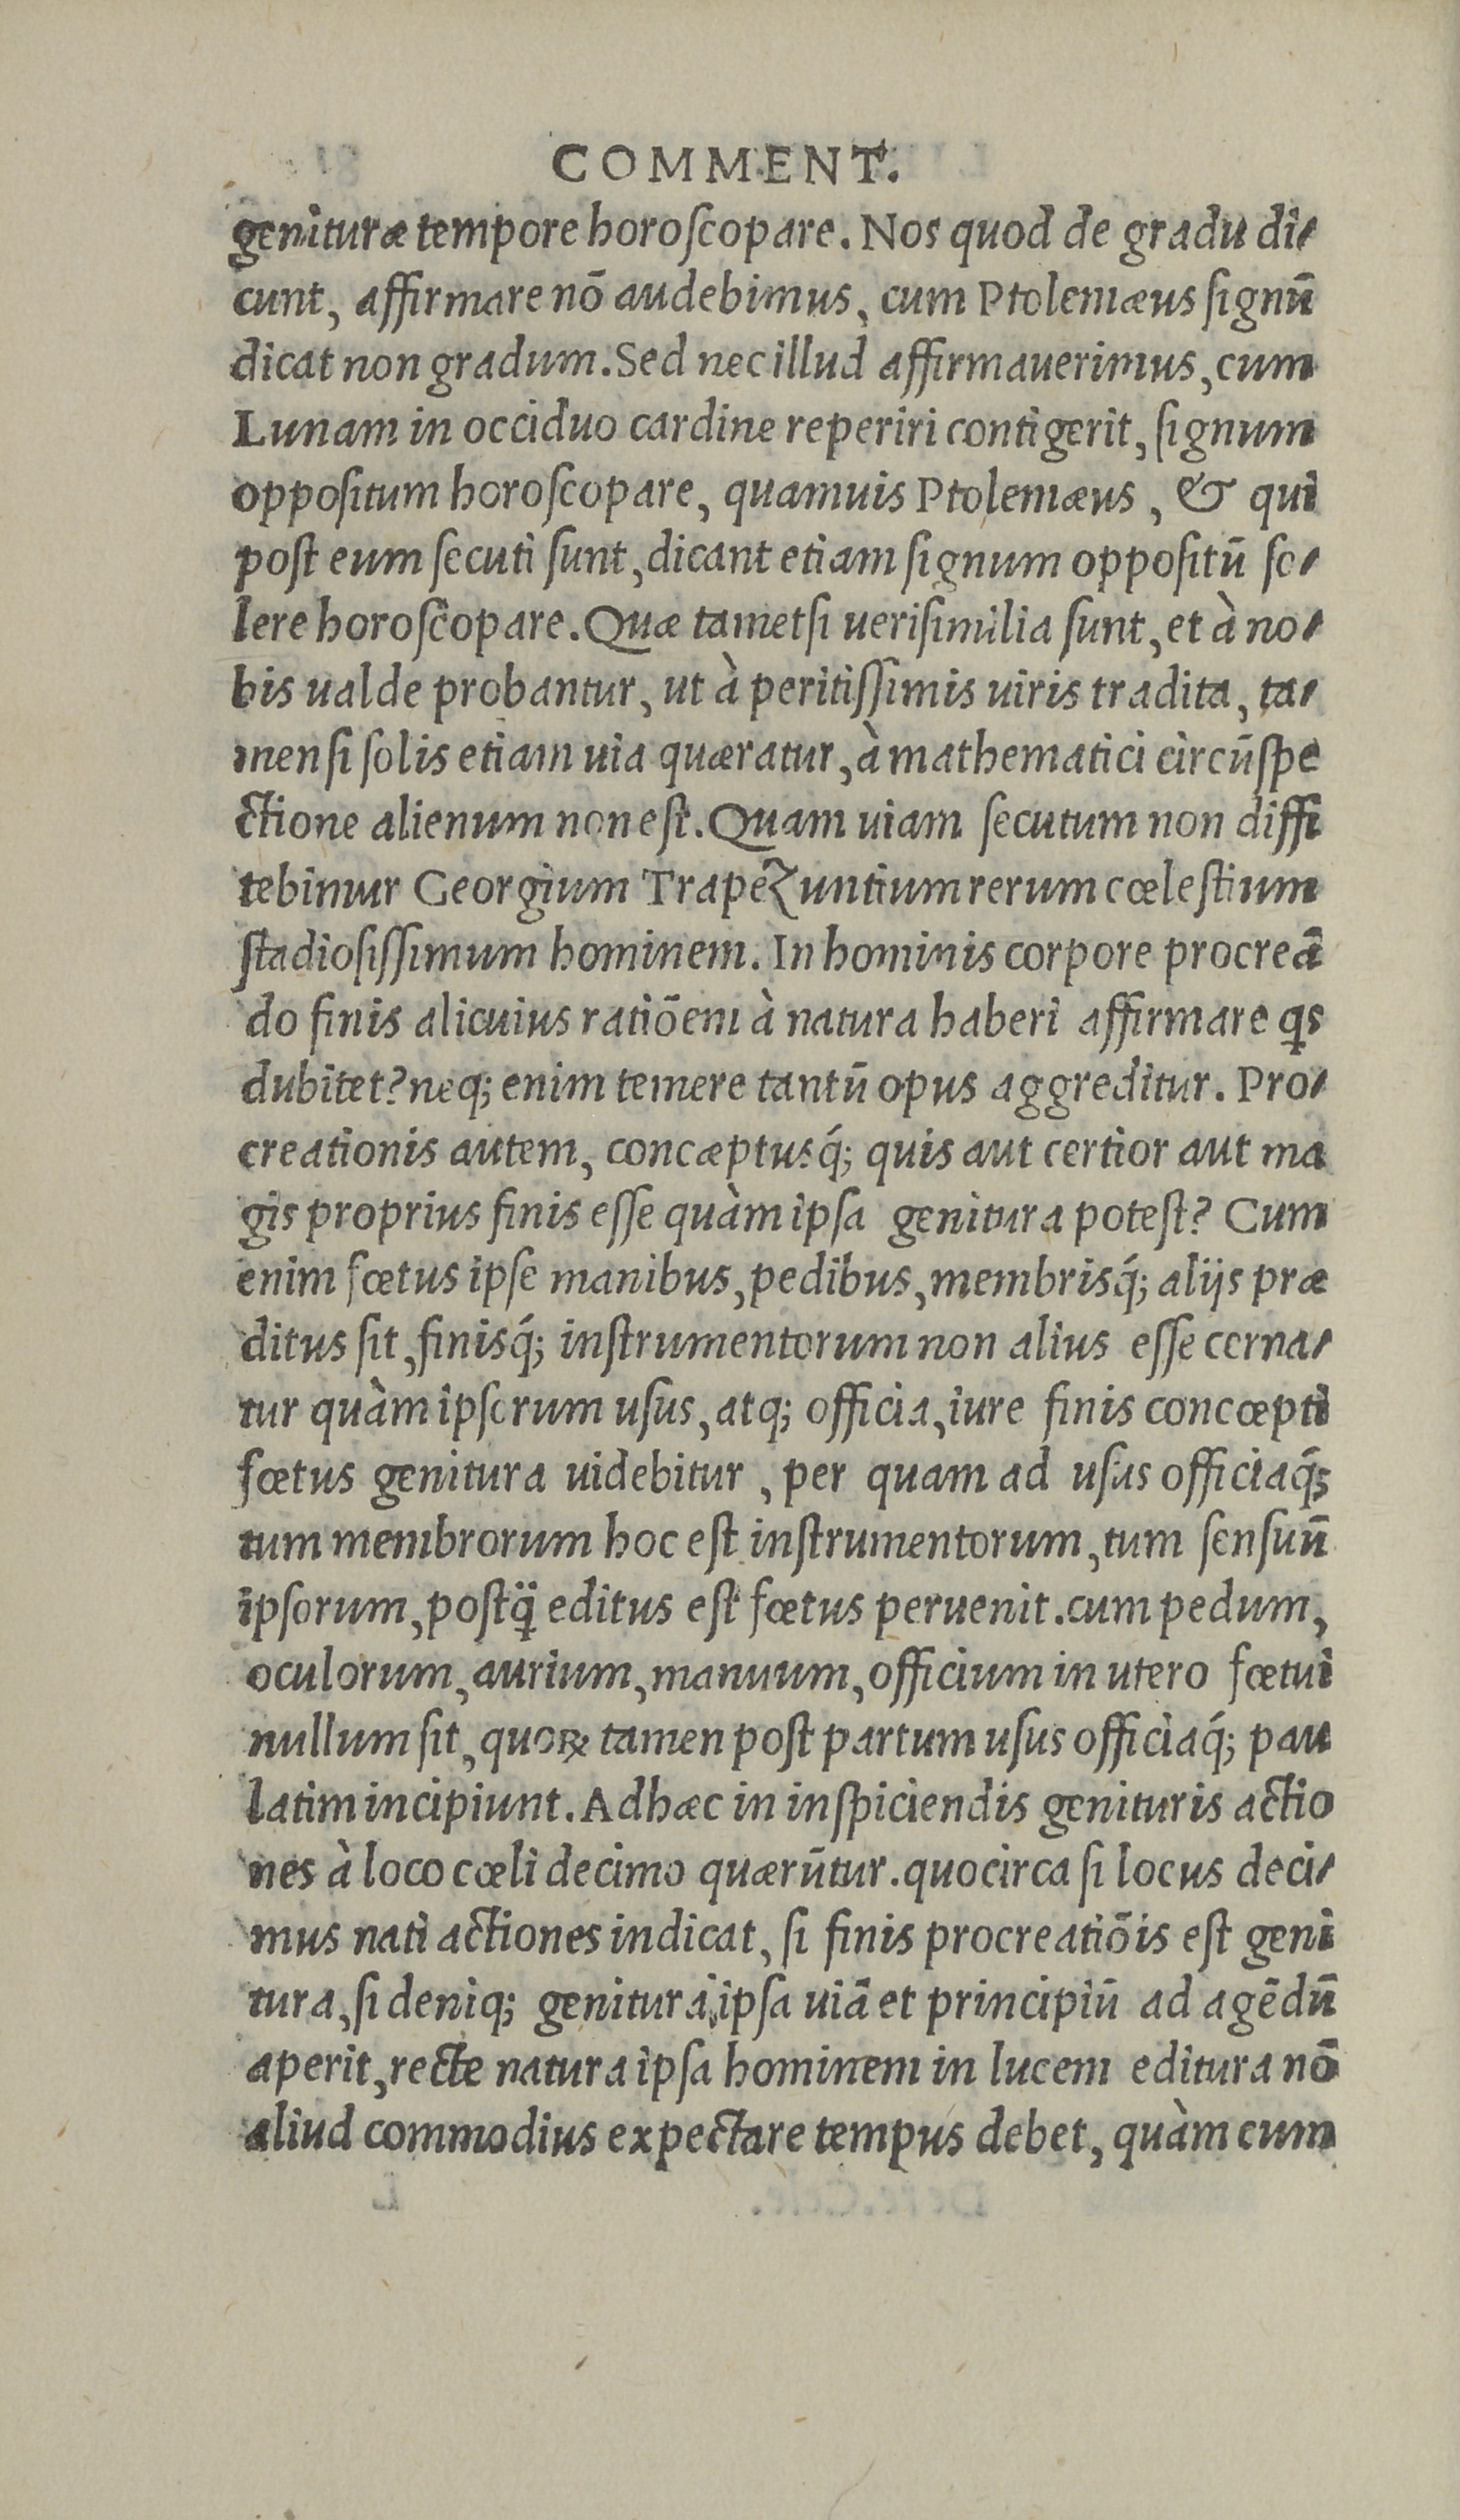 COMMENT.
genituræ tempore horoſcopare. Nos quod de gradu di-
cunt, affirmare nō audebimus, cum Ptolemæus ſignū
dicat non gradum. Sed nec illud affirmauerimus, cum
Lunam in occiduo cardine reperiri contigerit, ſignum
oppoſitum horoſcopare, quamuis Ptolemæus, & qui
poſt eum ſecuti ſunt, dicant etiam ſignum oppoſitū ſo-
lere horoſcopare. Quæ tametſi ueriſimilia ſunt, et à no-
bis ualde probantur, ut à peritiſſimis uiris tradita, ta-
men ſi ſolis etiam uia quæratur, à mathematici circūſpe
ctione alienum non eſt. Quam uiam ſecutum non diffi
tebimur Georgium Trapezuntium rerum cœleſtium
ſtadioſiſſimum hominem. In hominis corpore procreā
do finis alicuius ratiōem à natura haberi affirmare qs
dubitet? neq; enim temere tantū opus aggreditur. Pro-
creationis autem, concæptusq́; quis aut certior aut ma
gis proprius finis eſſe quàm ipſa genitura poteſt? Cum
enim fœtus ipſe manibus, pedibus, membrisq́; alijs præ
ditus ſit, finisq́; inſtrumentorum non alius eſſe cerna-
tur quàm ipſorum uſus, atq; officia, iure finis concœpti
fœtus genitura uidebitur, per quam ad uſus officiaq́;
tum membrorum hoc eſt inſtrumentorum, tum ſenſuū
ipſorum, poſtq̈ editus eſt fœtus peruenit. cum pedum,
oculorum, aurium, manuum, officium in utero fœtui
nullum ſit, quoꝝ tamen poſt partum uſus officiaq́; pau
latim incipiunt. Adhæc in inſpiciendis genituris actio
nes à loco cœli decimo quærūtur. quocirca ſi locus deci-
mus nati actiones indicat, ſi finis procreatiōis eſt geni
tura, ſi deniq; genitura ipſa uiā et principiū ad agēdū
aperit, recte natura ipſa hominem in lucem editura nō
aliud commodius expectare tempus debet, quàm cum